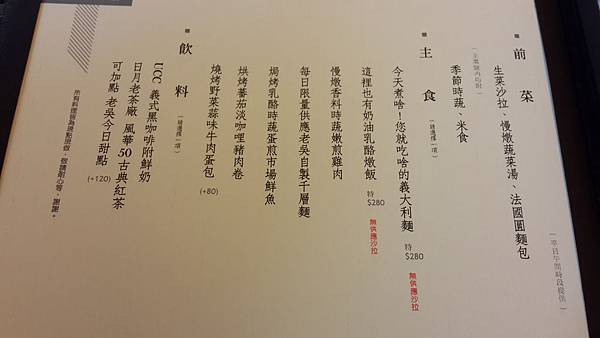 前菜
(平日午間時段提供)
生菜沙拉、慢燉蔬菜湯、法國圓麵包
季節時蔬、米食
主食 (請選擇一項)
今天煮啥!您就吃啥的義大利麵 特$280 無供應沙拉
這裡也有奶油乳酪燉飯 特$280 無供應沙拉
慢燉香料時蔬嫩煎雞肉
每日限量供應老吳自製千層麵
焗烤乳酪時蔬蛋煎市場鮮魚
烘烤蕃茄淡咖哩豬肉卷
燒烤野菜蒜味牛肉蛋包 (+80)
飲料 (請選擇一項)
UCC 義式黑咖啡附鮮奶
日月老茶廠 風華50古典紅茶
可加點 老吳今日甜點 (+120)
所有料理皆為現點現做，敬請耐心等，謝謝。